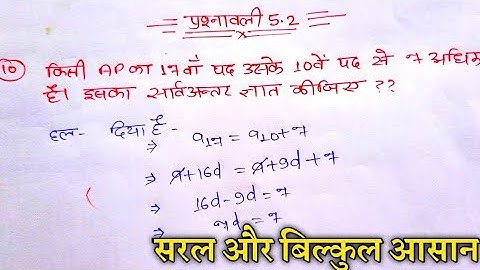 प्रश्नावली 5.2
10 किसी AP का 17वाँ पद उसके 10वें पद से 7 अधिक
है। इसका सार्वअन्तर ज्ञात कीजिए ??
हल- दिया है -
⇒ a17 = a10 + 7
⇒ a+16d = a+9d+7
⇒ 16d - 9d = 7
⇒ 7d = 7
सरल और बिल्कुल आसान